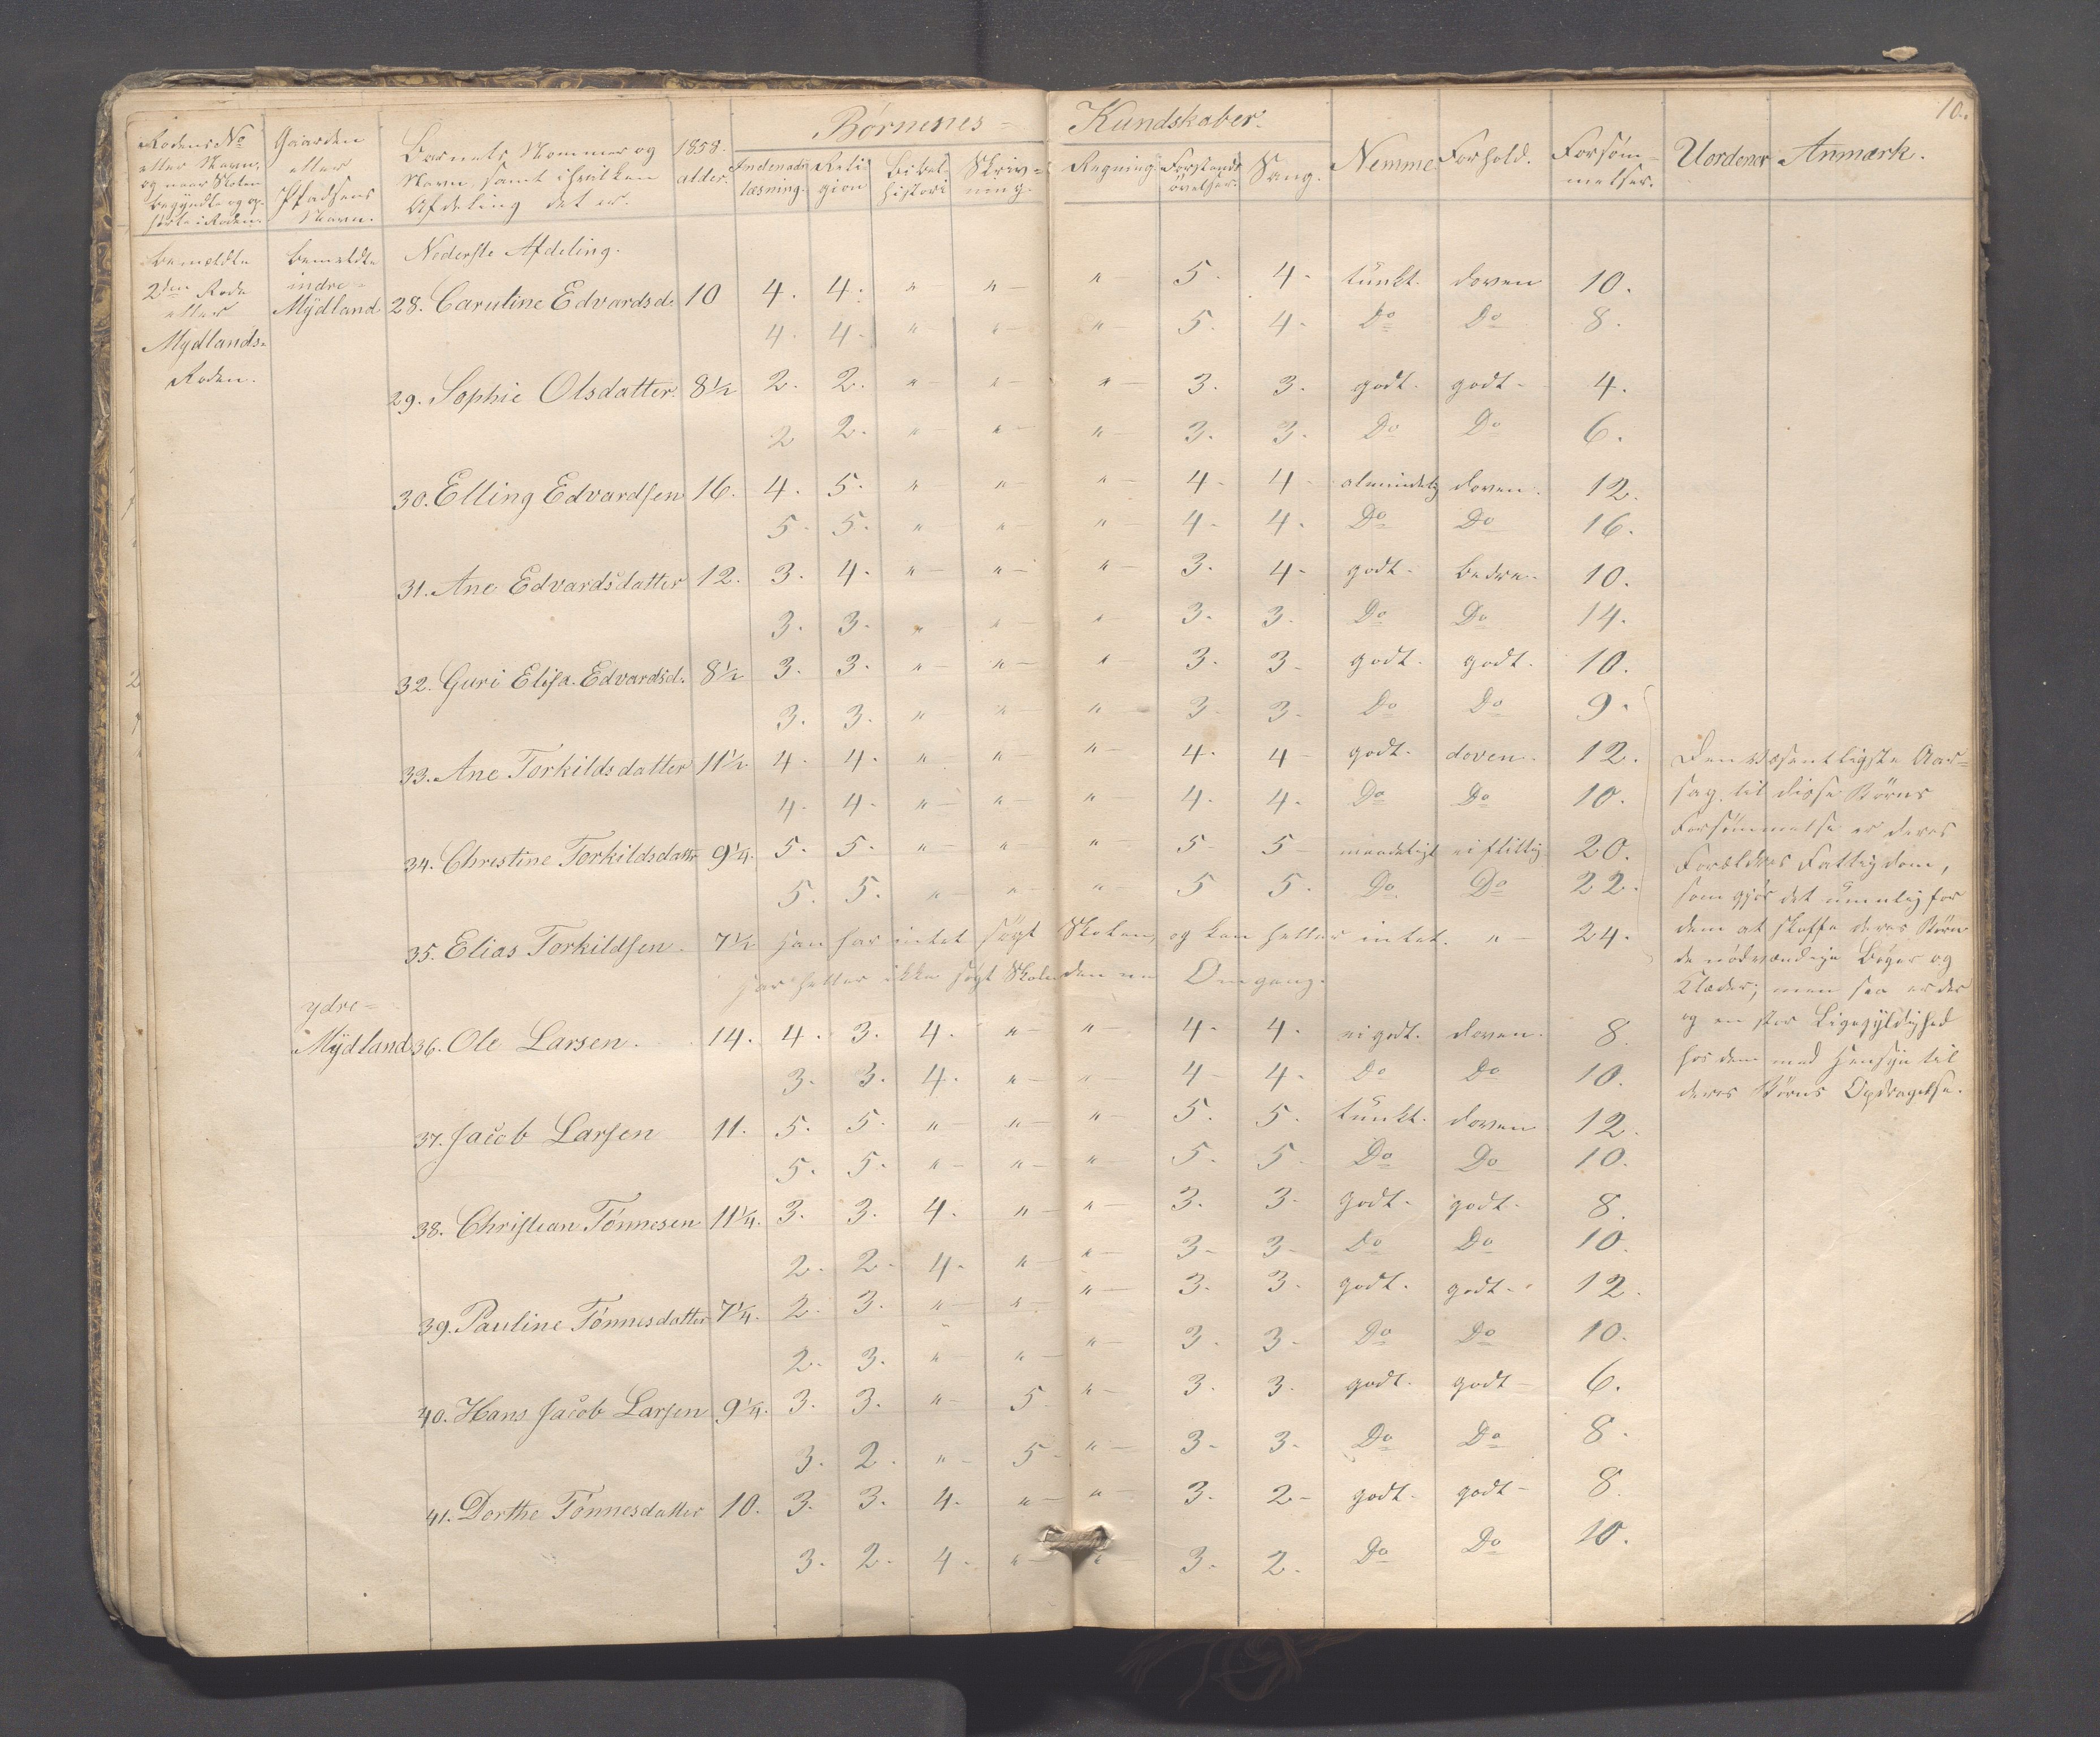 10.
Børnenes = Kundskaber.
Rodens No Gaarden Barnets Nommer og 1858. Indenads Reli Bibel- Skriv= Regning. Forstands Sang. Nemme. Forhold. Forsøm= Uordener Anmærk.
eller Navn, eller Navn, samt i hvilken alder. læsning. gion histori ning. øvelser. melser.
og naar Skolen Pladsens Afdeling det er.
begyndte og op= Navn.
hørte i Roden.
bemeldte bemeldte Nederste Afdeling.
2den Rode indre=
eller Mÿdland 28. Carutine Edvardsd. 10 4. 4. " " — " — 5. 4. tungt. doven 10.
Mydlands= 4. 4. " — " — " — 5. 4. Do Do 8.
Roden.
29. Sophie Olsdatter. 8 1/2 2. 2. " — " — " — 3. 3. godt. godt. 4.
2 2. " — " — " — 3. 3. Do Do 6.
30. Elling Edvardsen 16. 4. 5. " — " — " — 4. 4. almindelig doven. 12.
5. 5. " " — " — 4. 4. Do Do 16.
31. Ane Edvardsdatter 12. 3. 4. " — " — " — 3. 4. godt. bedre. 10.
3. 3. " " — " — 3. 3. Do Do 14.
32. Guri Elisa. Edvardsd. 8 1/2 3. 3. " — " — " — 3. 3. godt. godt. 10.
3. 3. " " — " — 3. 3. Do Do 9.
33. Ane Torkildsdatter 11 1/2 4. 4. " — " " — 4. 4 godt. doven. 12.
4. 4. " — " — " 4. 4. Do Do 10.
34. Christine Torkildsdattr 9 1/4. 5. 5. " — " — " 5 5 maadeligt ei flittig 20.
5. 5. " — " — " — 5 5. Do Do 22.
35. Elias Torkildsen. 7 1/2 han har intet søgt Skolen, og kan heller intet. " — 24.
har heller ikke søgt Skolen denne Omgang.
ydre=
Mÿdland 36. Ole Larsen. 14. 4. 3. 4. " — " 4. 4. ei godt. doven. 8.
3. 3. 4. " — " — 4 4. Do Do 10.
37. Jacob Larsen 11. 5. 5. " — " — " — 5. 5. tungt. doven 12.
5. 5. " — " — " — 5. 5. Do Do 10.
38. Christian Tønnesen 11 1/4. 3. 3. 4. " — " — 3. 3. godt. godt. 8.
2. 2. 4. " — " — 3. 3. Do Do 10.
39. Pauline Tønnesdatter 7 1/4. 2. 3. " — " — " — 3. 3. godt. godt. 12.
2. 3. " — " — " — 3. 3. Do Do 10.
40. Hans Jacob Larsen 9 1/4. 3. 3. " — 5. " — 3. 3. godt. godt 6.
3. 2. " — 5 " — 3. 3. Do Do 8.
41. Dorthe Tønnesdatter 10. 3. 3. 4. " — " — 3. 2. godt. godt 8.
3. 2. 4. " — " — 3. 2. Do Do 10.
Den væsentligste Aar=
sag til disse Børns
Forsømmelse er deres
Forældres Fattigdom,
som gjør det umulig for
dem at skaffe deres Børn
de nødvændige Bøger og
Klæder; men saa er der
og en stor Ligegyldighed
hos dem med Hensyn til
deres Børns Opdragelse.